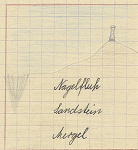 Nagelfluh
Sandstein
Mergel